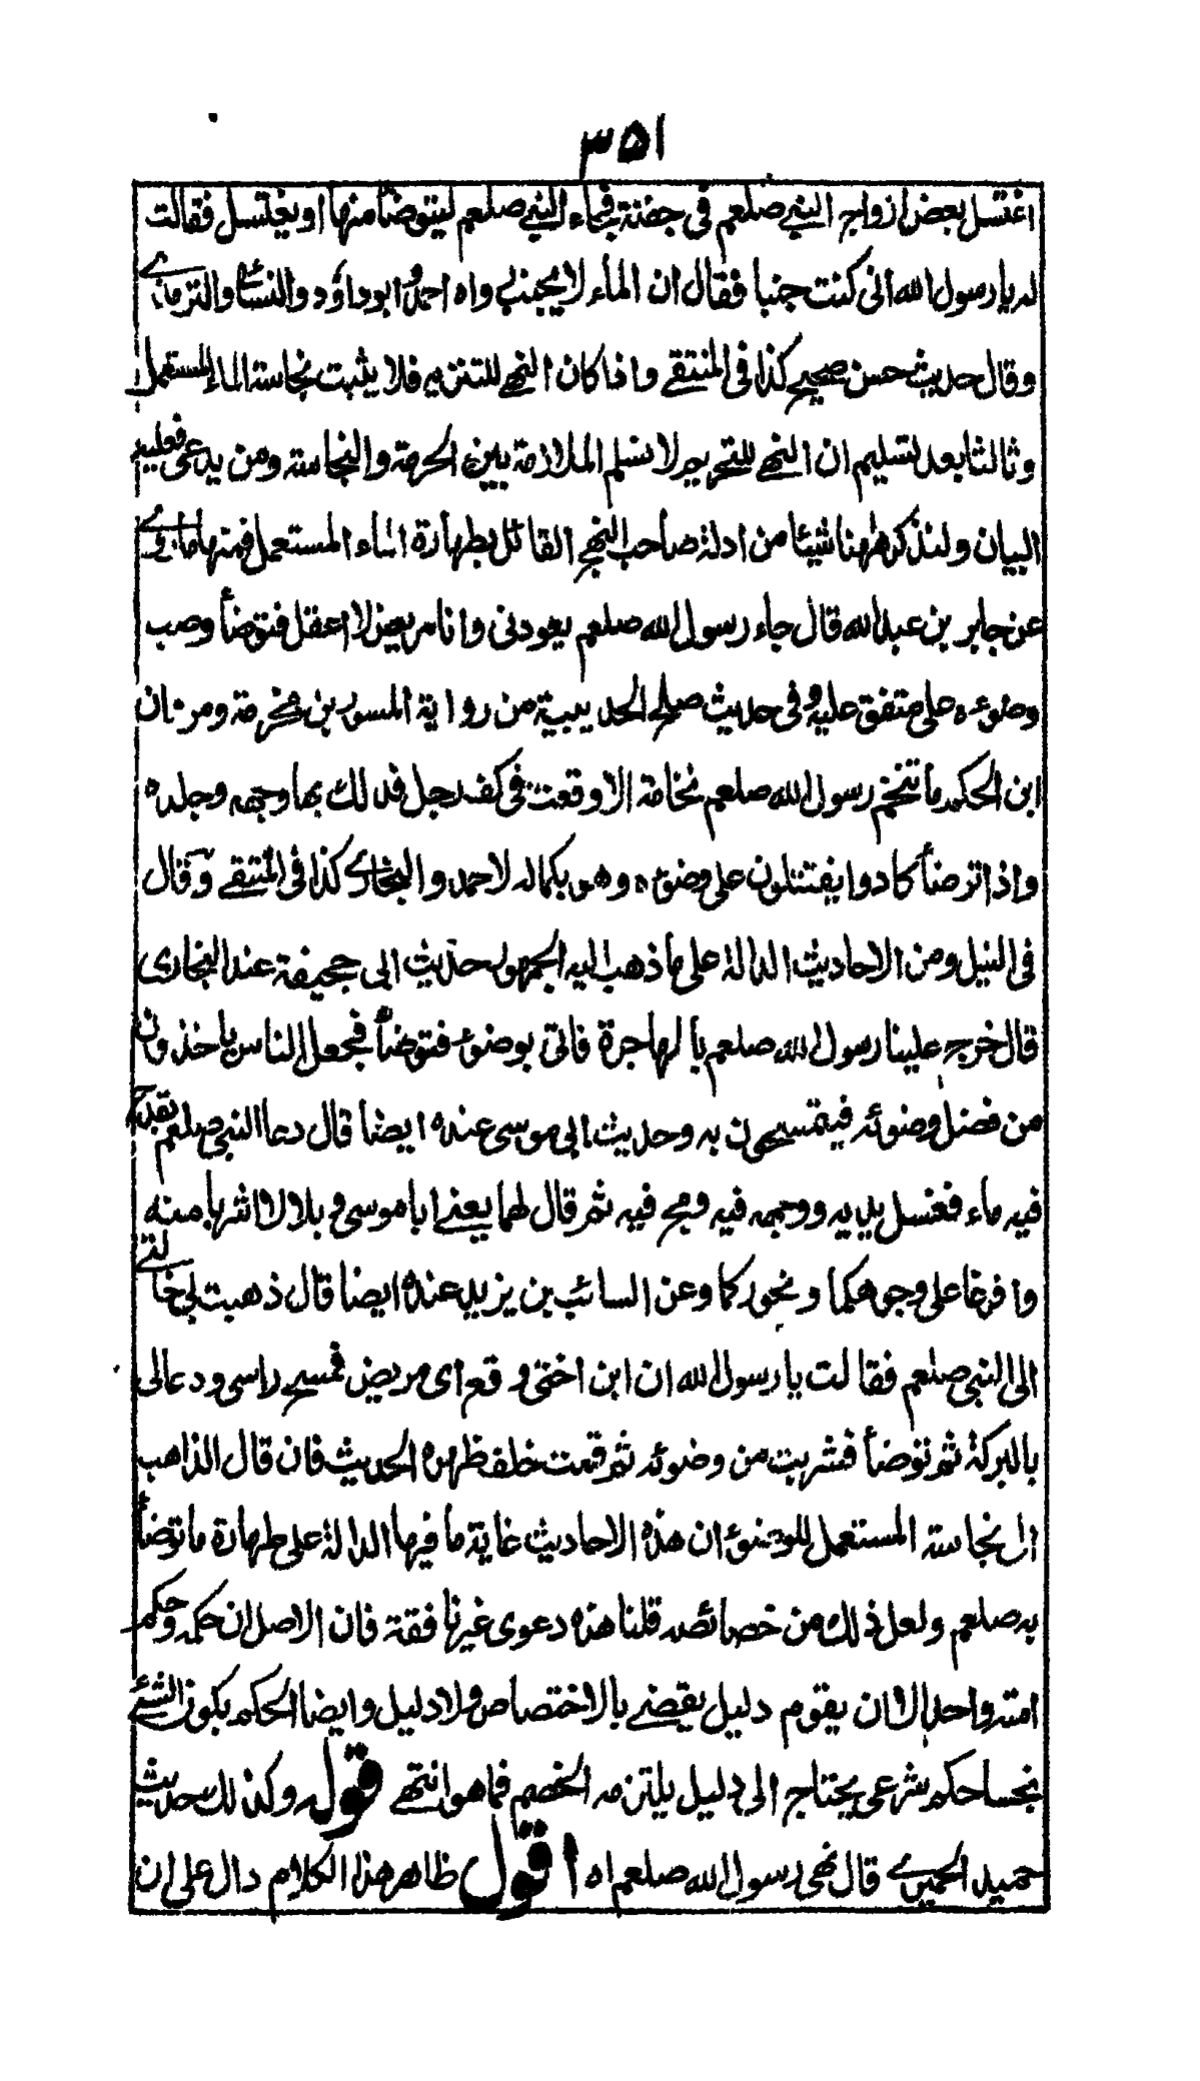 ۳۵۱
اغتسل بعض ازواج النبي صلعم في جفنة فجاء النبي صلعم ليتوضأ منها او يغتسل فقالت
له يا رسول الله انى كنت جنبا فقال ان الماء لا يجنب رواه احمد وابوداؤد والنسائى والترمذى
وقال حديث حسن صحيح كذا فى المنتقے واذا كان النهے للتنزيه فلا يثبت نجاسة الماء المستعمل
وثالثا بعد تسليم ان النهے للتحريم لا نسلم الملازمة بين الحرمة والنجاسة ومن يدعى فعليه
البيان ولنذكر ههنا شيئا من ادلة صاحب النهج القائل بطهارة الماء المستعمل فمنها ما روے
عن جابر بن عبد الله قال جاء رسول الله صلعم يعودنى وانا مريض لا اعقل فتوضأ وصب
وضوءه على متفق عليه وفى حديث صلح الحديبية من رواية المسور بن مخرمة ومروان
ابن الحكم ما تنخم رسول الله صلعم نخامة الا وقعت فى كف رجل فدلك بها وجهه وجلده
واذا توضأ كادوا يقتتلون على وضوءه وهو بكماله لاحمد والبخارى كذا فى المنتقے وقال
فى النيل ومن الاحاديث الدالة على ما ذهب اليه الجمهور حديث ابى جحيفة عند البخارى
قال خرج علينا رسول الله صلعم بالهاجرة فاتى بوضوء فتوضأ فجعل الناس ياخذون
من فضل وضوئه فيتمسحون به وحديث ابى موسى عنده ايضا قال دعا النبى صلعم بقدح
فيه ماء فغسل يديه ووجهه فيه ومج فيه ثم قال لهما يعنے ابا موسى و بلالا اشربا منه
وافرغا على وجوهكما ونحوركما وعن السائب بن يزيد عنده ايضا قال ذهبت بى خالتے
الى النبى صلعم فقالت يا رسول الله ان ابن اختى وقع اى مريض فمسح راسى ودعا لى
بالبركة ثم توضأ فشربت من وضوئه ثم قمت خلف ظهره الحديث فان قال الذاهب
الى نجاسة المستعمل للوضوء ان هذه الاحاديث غاية ما فيها الدالة على طهارة ما توضأ
به صلعم ولعل ذلك من خصائصه قلنا هذه دعوى غير نافقة فان الاصل ان حكمه وحكم
امته واحد الا ان يقوم دليل يقضے بالاختصاص ولا دليل وايضا الحكم بكون الشئے
نجسا حكم شرعى يحتاج الى دليل يلتزمه الخصم فما هو انتهے قوله وكذلك حديث
حميد الحميرے قال نهى رسول الله صلعم اه اقول ظاهر هذا الكلام دال على ان